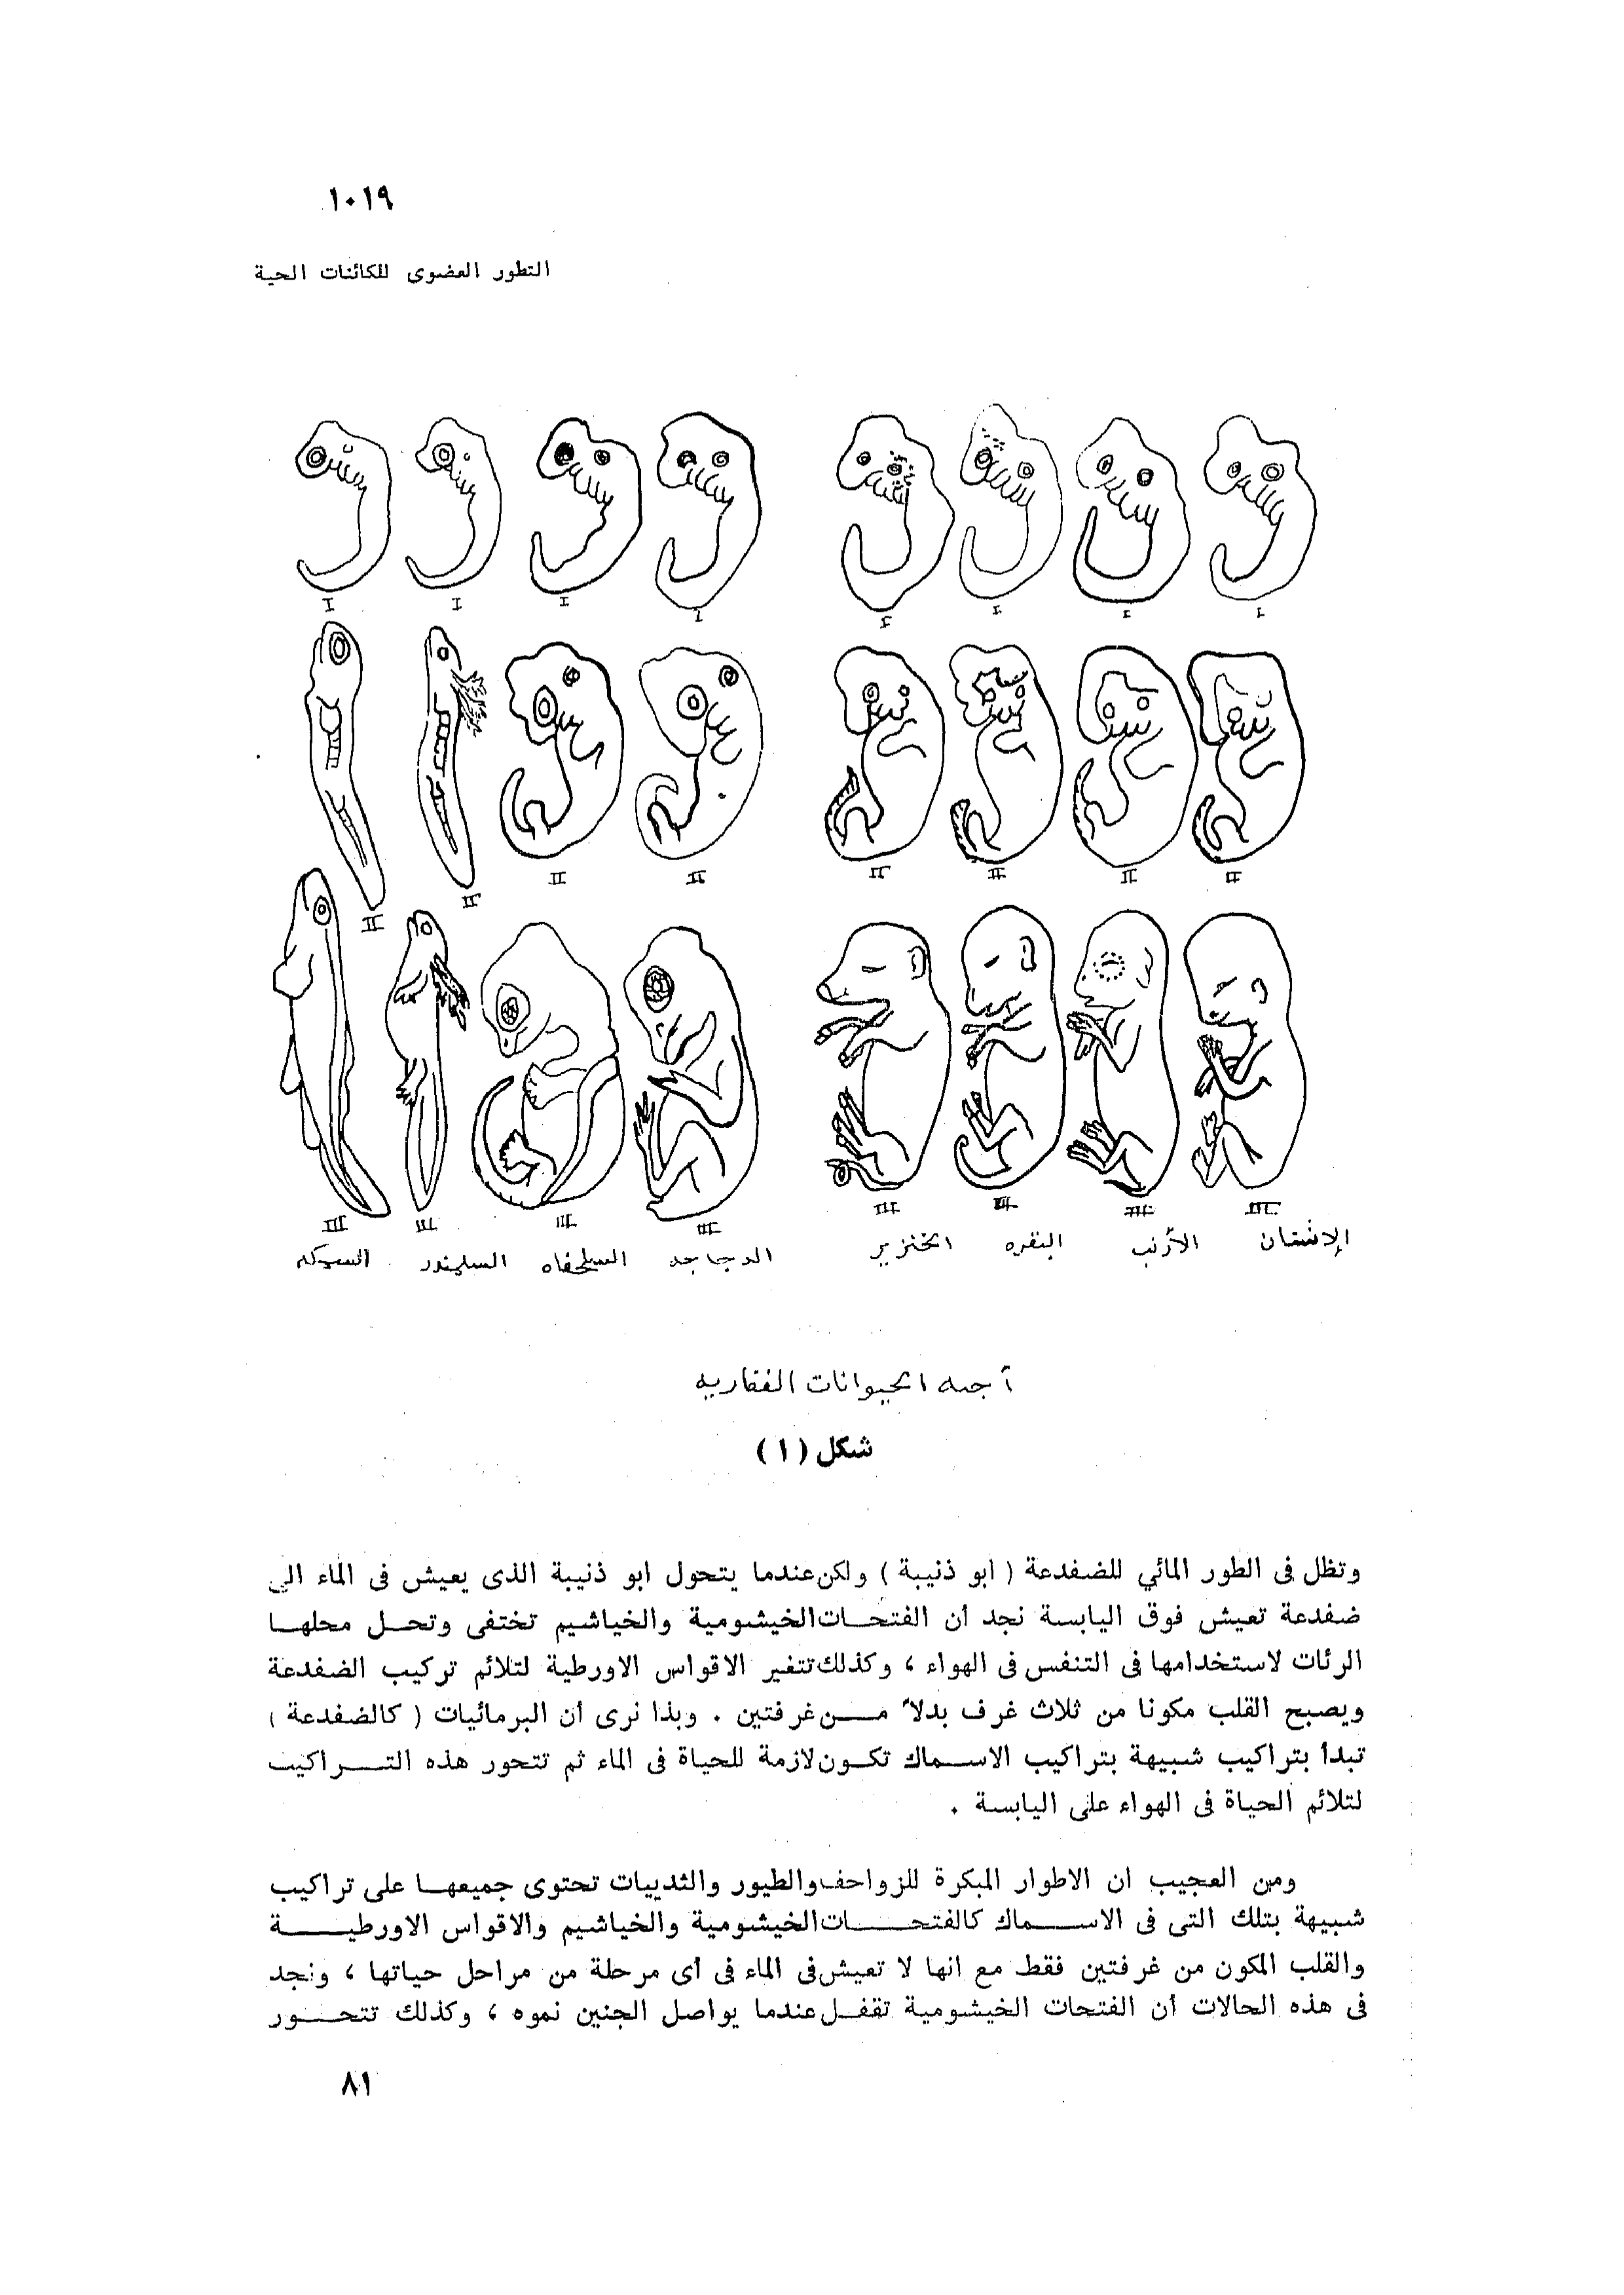 ١٠١٩
التطور العضوى للكائنات الحية
I I I I I I I I
II II II II II II II II
III III III III III III III III
السمكه السلمندر السلحفاه الدجاجه الخنزير البقره الأرنب الإنسان
أجنه الحيوانات الفقاريه
شكل (١)
وتظل فى الطور المائي للضفدعة ( ابو ذنيبة ) ولكن عندما يتحول ابو ذنيبة الذى يعيش فى الماء الى
ضفدعة تعيش فوق اليابسة نجد أن الفتحات الخيشومية والخياشيم تختفى وتحل محلها
الرئات لاستخدامها فى التنفس فى الهواء ، وكذلك تتغير الاقواس الاورطية لتلائم تركيب الضفدعة
ويصبح القلب مكونا من ثلاث غرف بدلاً من غرفتين . وبذا نرى أن البرمائيات ( كالضفدعة )
تبدأ بتراكيب شبيهة بتراكيب الاسماك تكون لازمة للحياة فى الماء ثم تتحور هذه التراكيب
لتلائم الحياة فى الهواء على اليابسة .
ومن العجيب ان الاطوار المبكرة للزواحف والطيور والثدييات تحتوى جميعها على تراكيب
شبيهة بتلك التى فى الاسماك كالفتحات الخيشومية والخياشيم والاقواس الاورطية
والقلب المكون من غرفتين فقط مع انها لا تعيش فى الماء فى أى مرحلة من مراحل حياتها ، ونجد
فى هذه الحالات أن الفتحات الخيشومية تقفل عندما يواصل الجنين نموه ، وكذلك تتحور
٨١